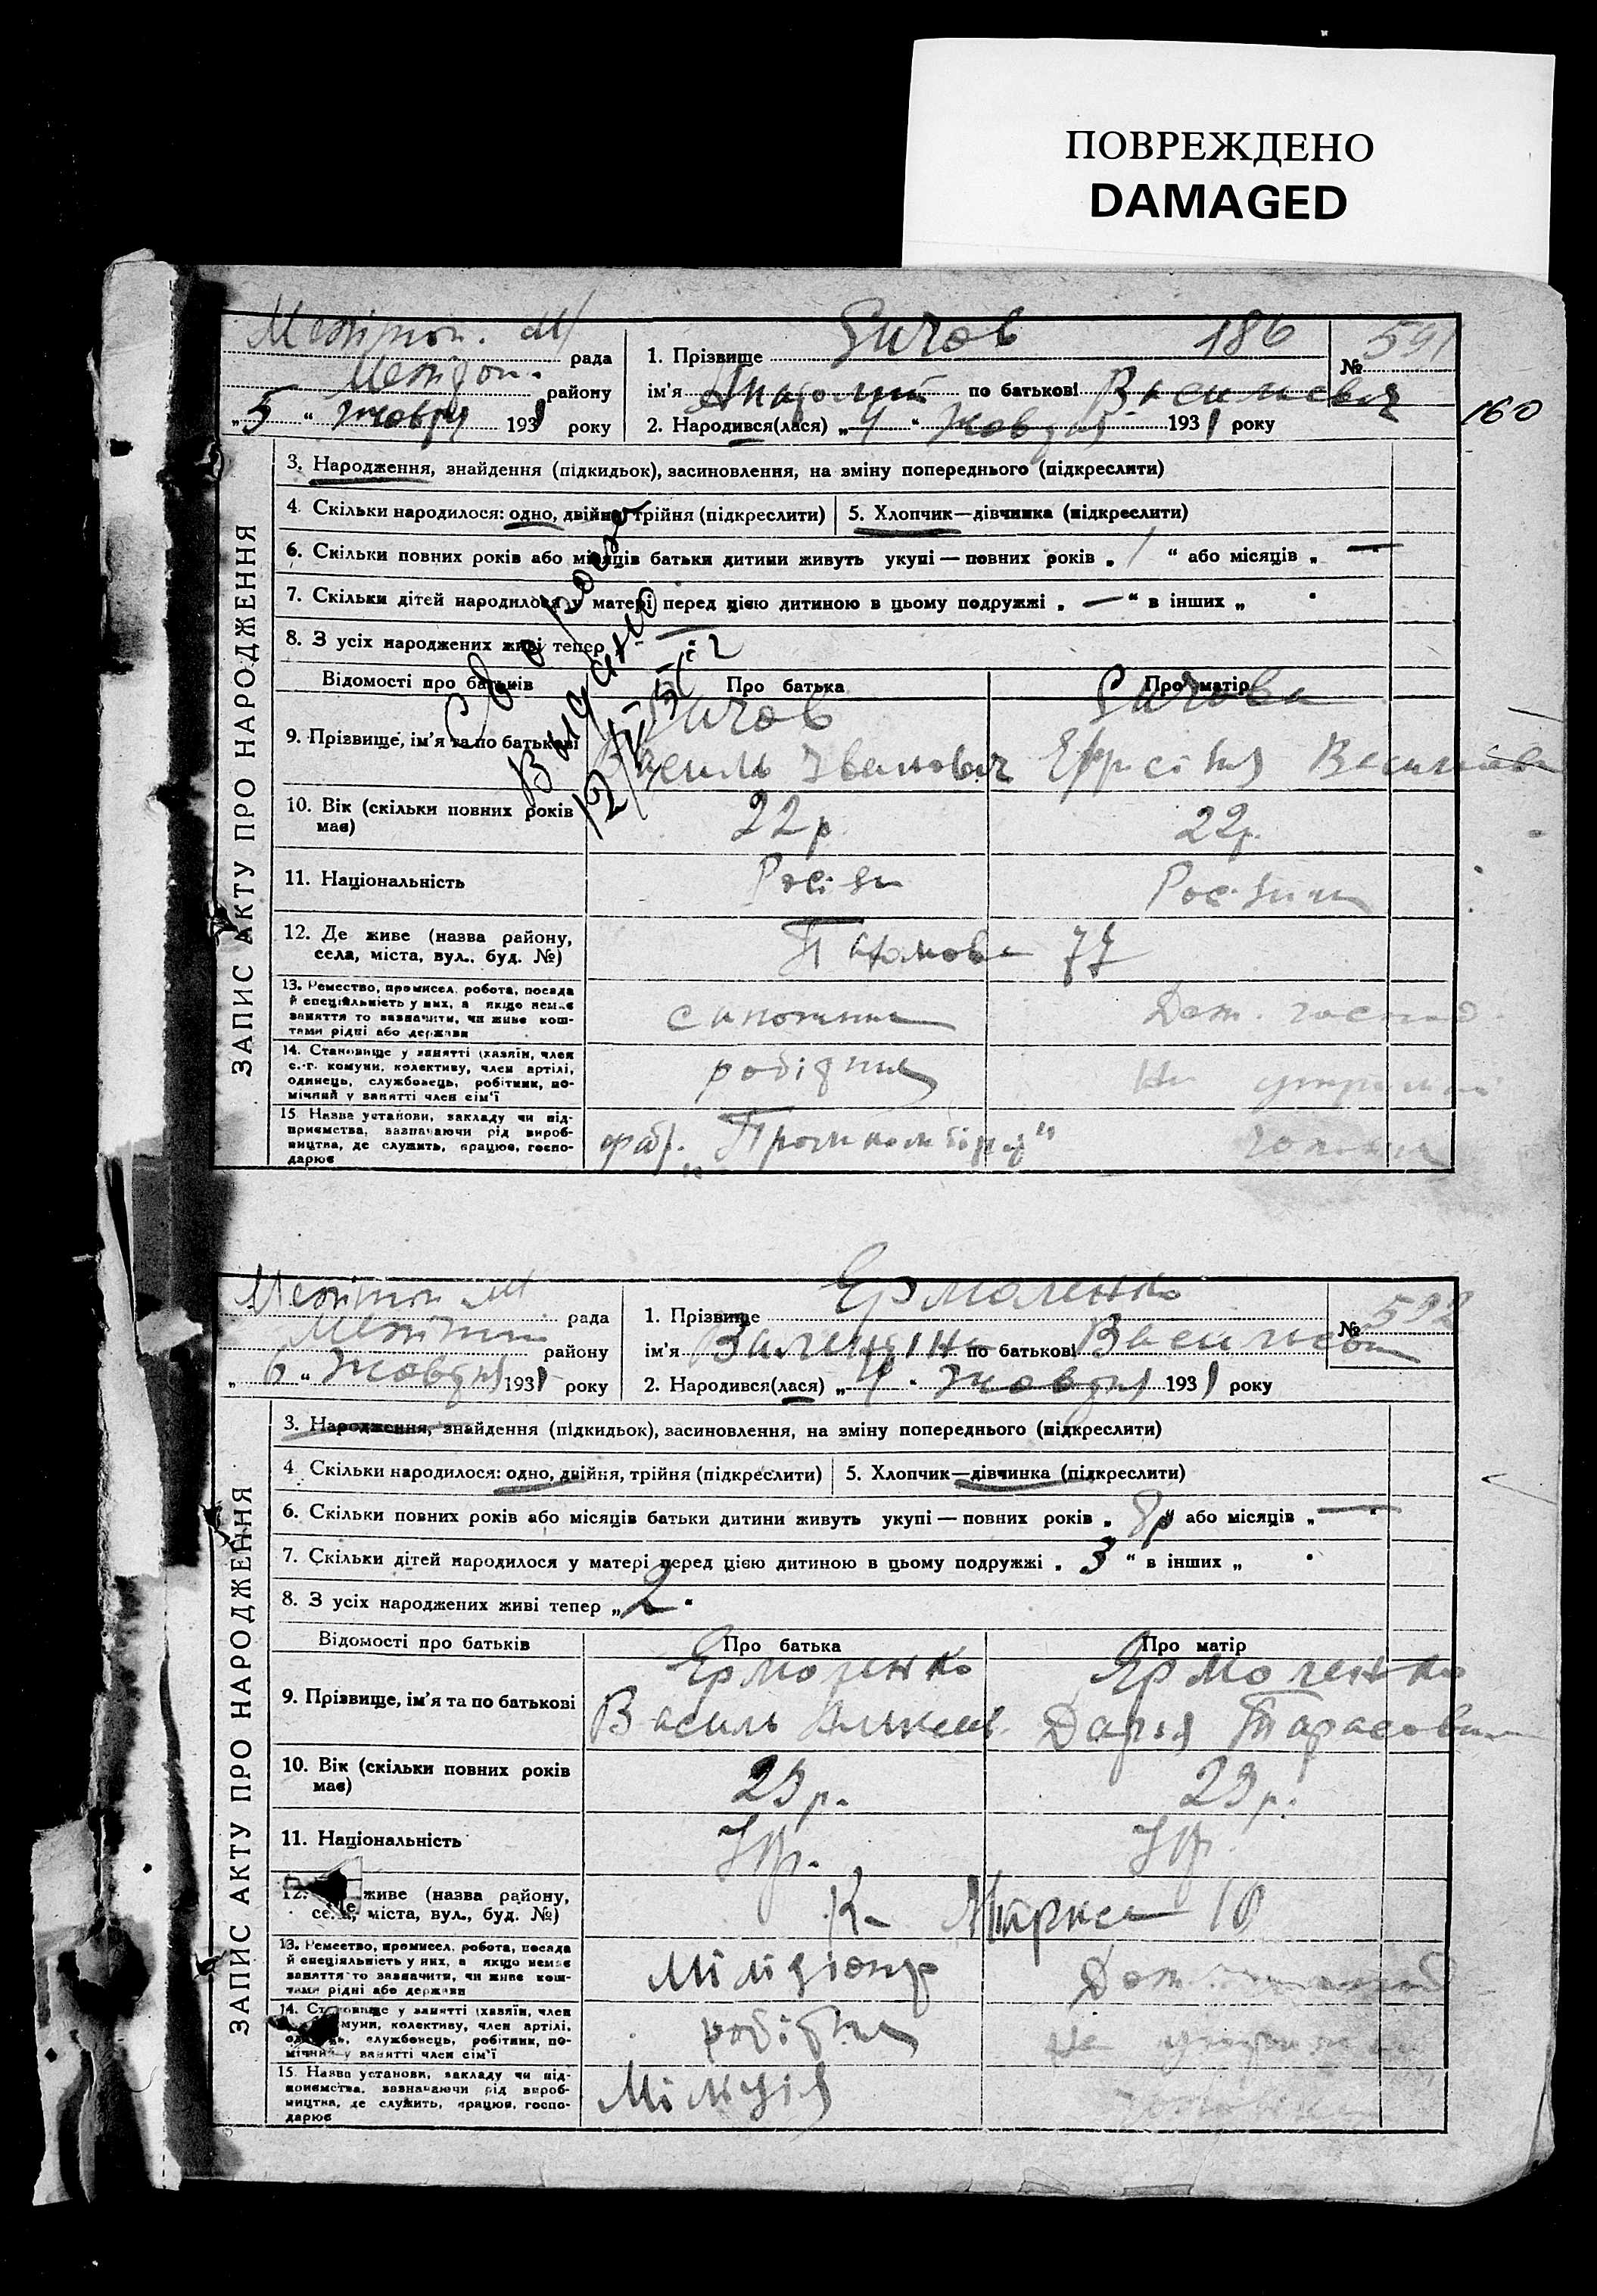 ПОВРЕЖДЕНО
DAMAGED
рада
1. Прізвище 186
№ 591
району
ім'я Анатолий по батькові Васильевич
160
„5“ жовтня 1931 року
2. Народився(лася) „4“ Жовтня 1931 року
ЗАПИС АКТУ ПРО НАРОДЖЕННЯ
3. Народження, знайдення (підкидьок), засиновлення, на зміну попереднього (підкреслити)
4. Скільки народилося: одно, двійня, трійня (підкреслити)
5. Хлопчик—дівчинка (підкреслити)
6. Скільки повних років або місяців батьки дитини живуть укупі — повних років „1“ або місяців „—“
7. Скільки дітей народилося у матері перед цією дитиною в цьому подружжі „—“ в інших „ “
8. З усіх народжених живі тепер „—“
Видано
Відомості про батьків
Про батька
Про матір
9. Прізвище, ім'я та по батькові
Василь Іванович
Ефросінія
10. Вік (скільки повних років має)
22 р.
22 р.
11. Національність
12. Де живе (назва району, села, міста, вул., буд. №)
77
13. Ремество, промисел, робота, посада й спеціяльність у них, а якщо немає заняття то зазначити, чи живе коштами рідні або держави
Дом. господ.
14. Становище у занятті (хазяїн, член с.-г. комуни, колективу, член артілі, одинець, службовець, робітник, помічний у занятті член сім'ї
робітник
На утриманні
15. Назва установи, закладу чи підприємства, зазначаючи рід виробництва, де служить, працює, господарює
фабр. „Промкомбінат“
чоловіка
рада
1. Прізвище Ермоленко
№ 592
району
ім'я Валентіна по батькові Васильевна
„6“ Жовтня 1931 року
2. Народився(лася) „4“ Жовтня 1931 року
ЗАПИС АКТУ ПРО НАРОДЖЕННЯ
3. Народження, знайдення (підкидьок), засиновлення, на зміну попереднього (підкреслити)
4. Скільки народилося: одно, двійня, трійня (підкреслити)
5. Хлопчик—дівчинка (підкреслити)
6. Скільки повних років або місяців батьки дитини живуть укупі — повних років „8р“ або місяців „—“
7. Скільки дітей народилося у матері перед цією дитиною в цьому подружжі „3“ в інших „ “
8. З усіх народжених живі тепер „2“
Відомості про батьків
Про батька
Про матір
9. Прізвище, ім'я та по батькові
Ермоленко
Ярмоленко
Василь
Дарья Тарасовна
10. Вік (скільки повних років має)
29 р.
29 р.
11. Національність
Укр.
Укр.
12. Де живе (назва району, села, міста, вул., буд. №)
К. Маркса 10
13. Ремество, промисел, робота, посада й спеціяльність у них, а якщо немає заняття то зазначити, чи живе коштами рідні або держави
Міліціонер
Дом. господ
14. Становище у занятті (хазяїн, член с.-г. комуни, колективу, член артілі, одинець, службовець, робітник, помічний у занятті член сім'ї
робітник
На утриманні
15. Назва установи, закладу чи підприємства, зазначаючи рід виробництва, де служить, працює, господарює
Міліція
чоловіка